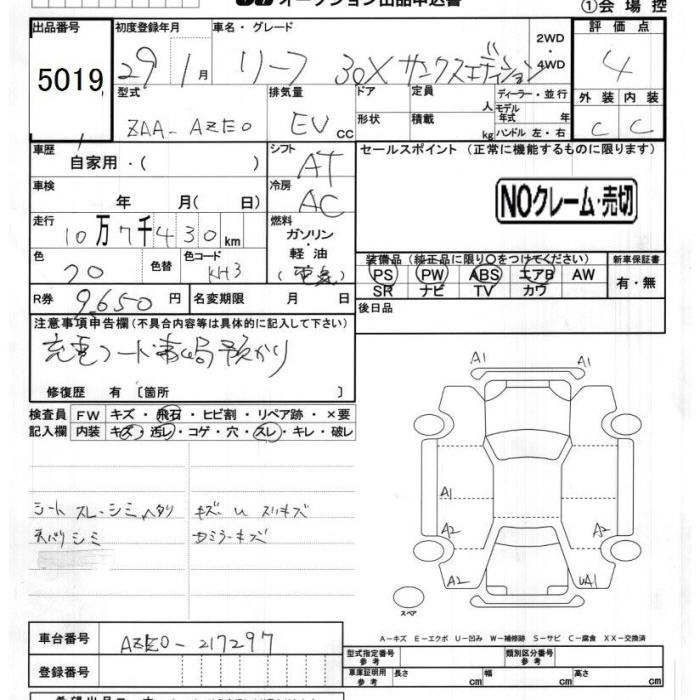 オークション出品申込書
①会場控
出品番号 初度登録年月 車名・グレード 評価点
5019 29 1月 リーフ 30X サンクスエディション 2WD・4WD 4
型式 排気量 ドア 定員 人 ディーラー・並行 外装 内装
ZAA-AZE0 EV cc 形状 積載 kg モデル年式 年 ハンドル 左・右 C C
車歴 自家用・( ) シフト AT セールスポイント (正常に機能するものに限ります)
車検 年 月( 日) 冷房 AC NOクレーム・売切
走行 10万7千430km 燃料 ガソリン・軽油
色 クロ 色替 色コード KH3 (電気)
装備品 (純正品に限り○をつけてください) 新車保証書
PS PW ABS エアB AW 有・無
SR ナビ TV カワ
R券 9,650円 名変期限 月 日 後日品
注意事項申告欄(不具合内容等は具体的に記入して下さい)
充電コード事ム局預かり
修復歴 有 〔箇所 〕
検査員 FW キズ・飛石・ヒビ割・リペア跡・×要
記入欄 内装 キズ・汚レ・コゲ・穴・スレ・キレ・破レ
シート スレ・シミ ヘタリ キズ U スリキズ
天バリシミ Gミラーキズ
A1 A1
A1
A2 A2
A2 UA1
スペア
A-キズ E-エクボ U-凹み W-補修跡 S-サビ C-腐食 XX-交換済
車台番号 AZE0-217297
型式指定番号 参考 類別区分番号 参考
登録番号 車庫証明用 参考 長さ cm 幅 cm 高さ cm
希望出品コーナー